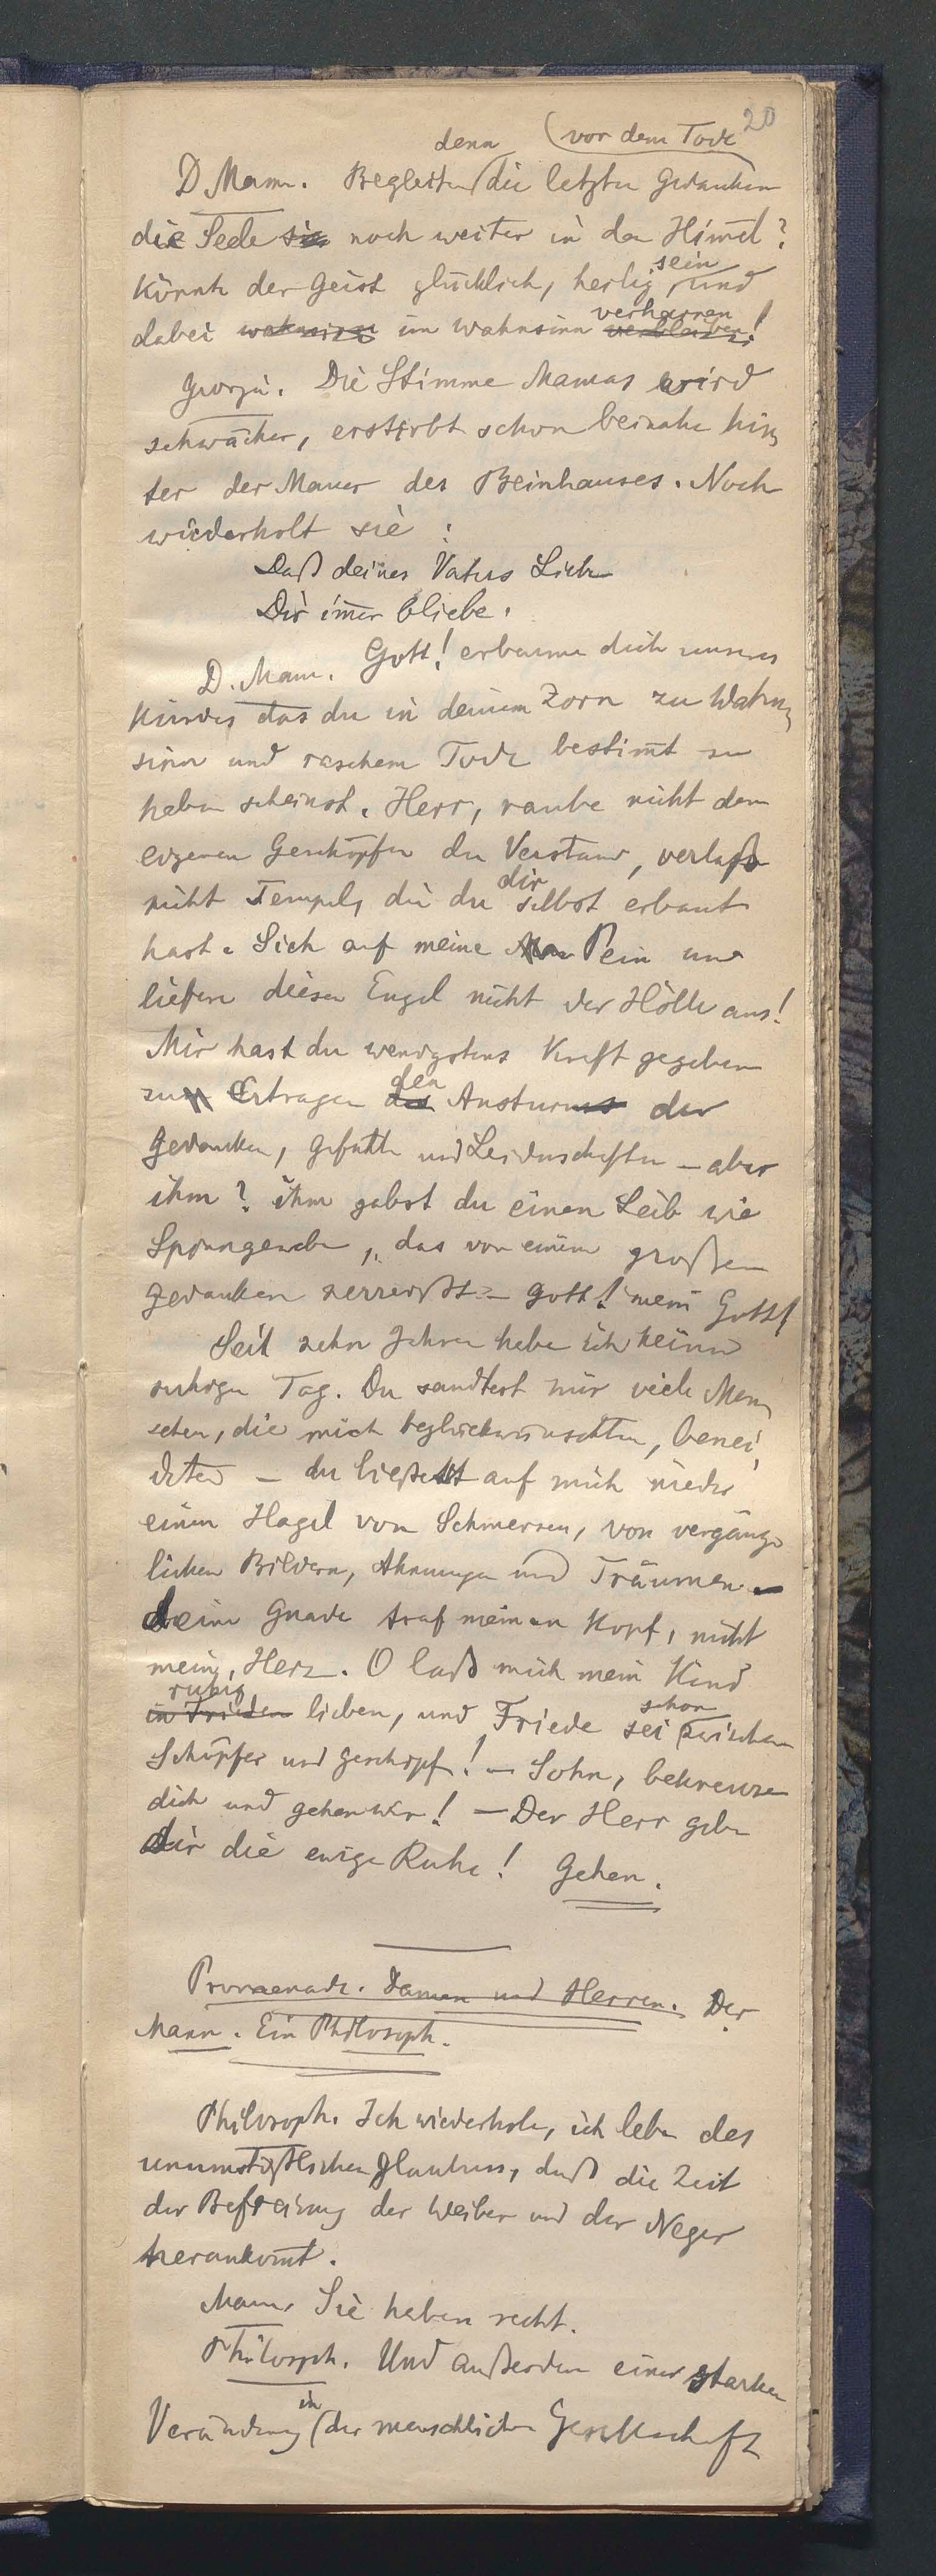 20
denn (vor dem Tode
D. Mann. Begleiten die letzten Gedanken
die Seele sie noch weiter in den Himel?
sein
Könnte der Geist glücklich, heilig, und
verharren
dabei wahnsinn im Wahnsinn verbleiben!
Georgie. Die Stimme Mamas wird
schwächer, erstirbt schon beinahe hin=
ter der Mauer des Beinhauses. Noch
wiederholt sie:
Daß deines Vaters Liebe
Dir im̄er bliebe.
D. Mann. Gott! erbarme dich unseres
Kindes das du in deinem Zorn zu Wahn=
sinn und raschem Tode bestim̄t zu
haben scheinst. Herr, raube nicht den
eigenen Geschöpfen den Verstand, verlaße
dir
nicht Tempel, die du selbst erbaut
hast. Sieh auf meine Pein und
liefere diesen Engel nicht der Hölle aus!
Mir hast du wenigstens Kraft gegeben
den
zum Ertragen des Ansturms der
Gedanken, Gefühle und Leidenschaften – aber
ihm? ihm gabst du einen Leib wie
Spinngewebe, das von einem großen
Gedanken zerreißt – Gott! mein Gott!
Seit zehn Jahren habe ich keinen
ruhigen Tag. Du sandtest mir viele Men=
schen, die mich beglückwünschten, benei=
deten – du ließest auf mich nieder
einen Hagel von Schmerzen, von vergäng=
lichen Bildern, Ahnungen und Träumen –
deine Gnade traf meinen Kopf, nicht
mein Herz. O laß mich mein Kind
ruhig schon
in Frieden lieben, und Friede sei zwischen
Schöpfer und Geschöpf! – Sohn, bekreuze
dich und gehen wir! – Der Herr gebe
dir die ewige Ruhe! Gehen.
Promenade. Damen und Herren. Der
Mann. Ein Philosoph.
Philosoph. Ich wiederhole, ich lebe des
unumstößlichen Glaubens, daß die Zeit
der Befreiung der Weiber und der Neger
herankom̄t.
Mann. Sie haben recht.
Philosoph. Und außerdem einer starken
in
Veränderung (der menschlichen Gesellschaft